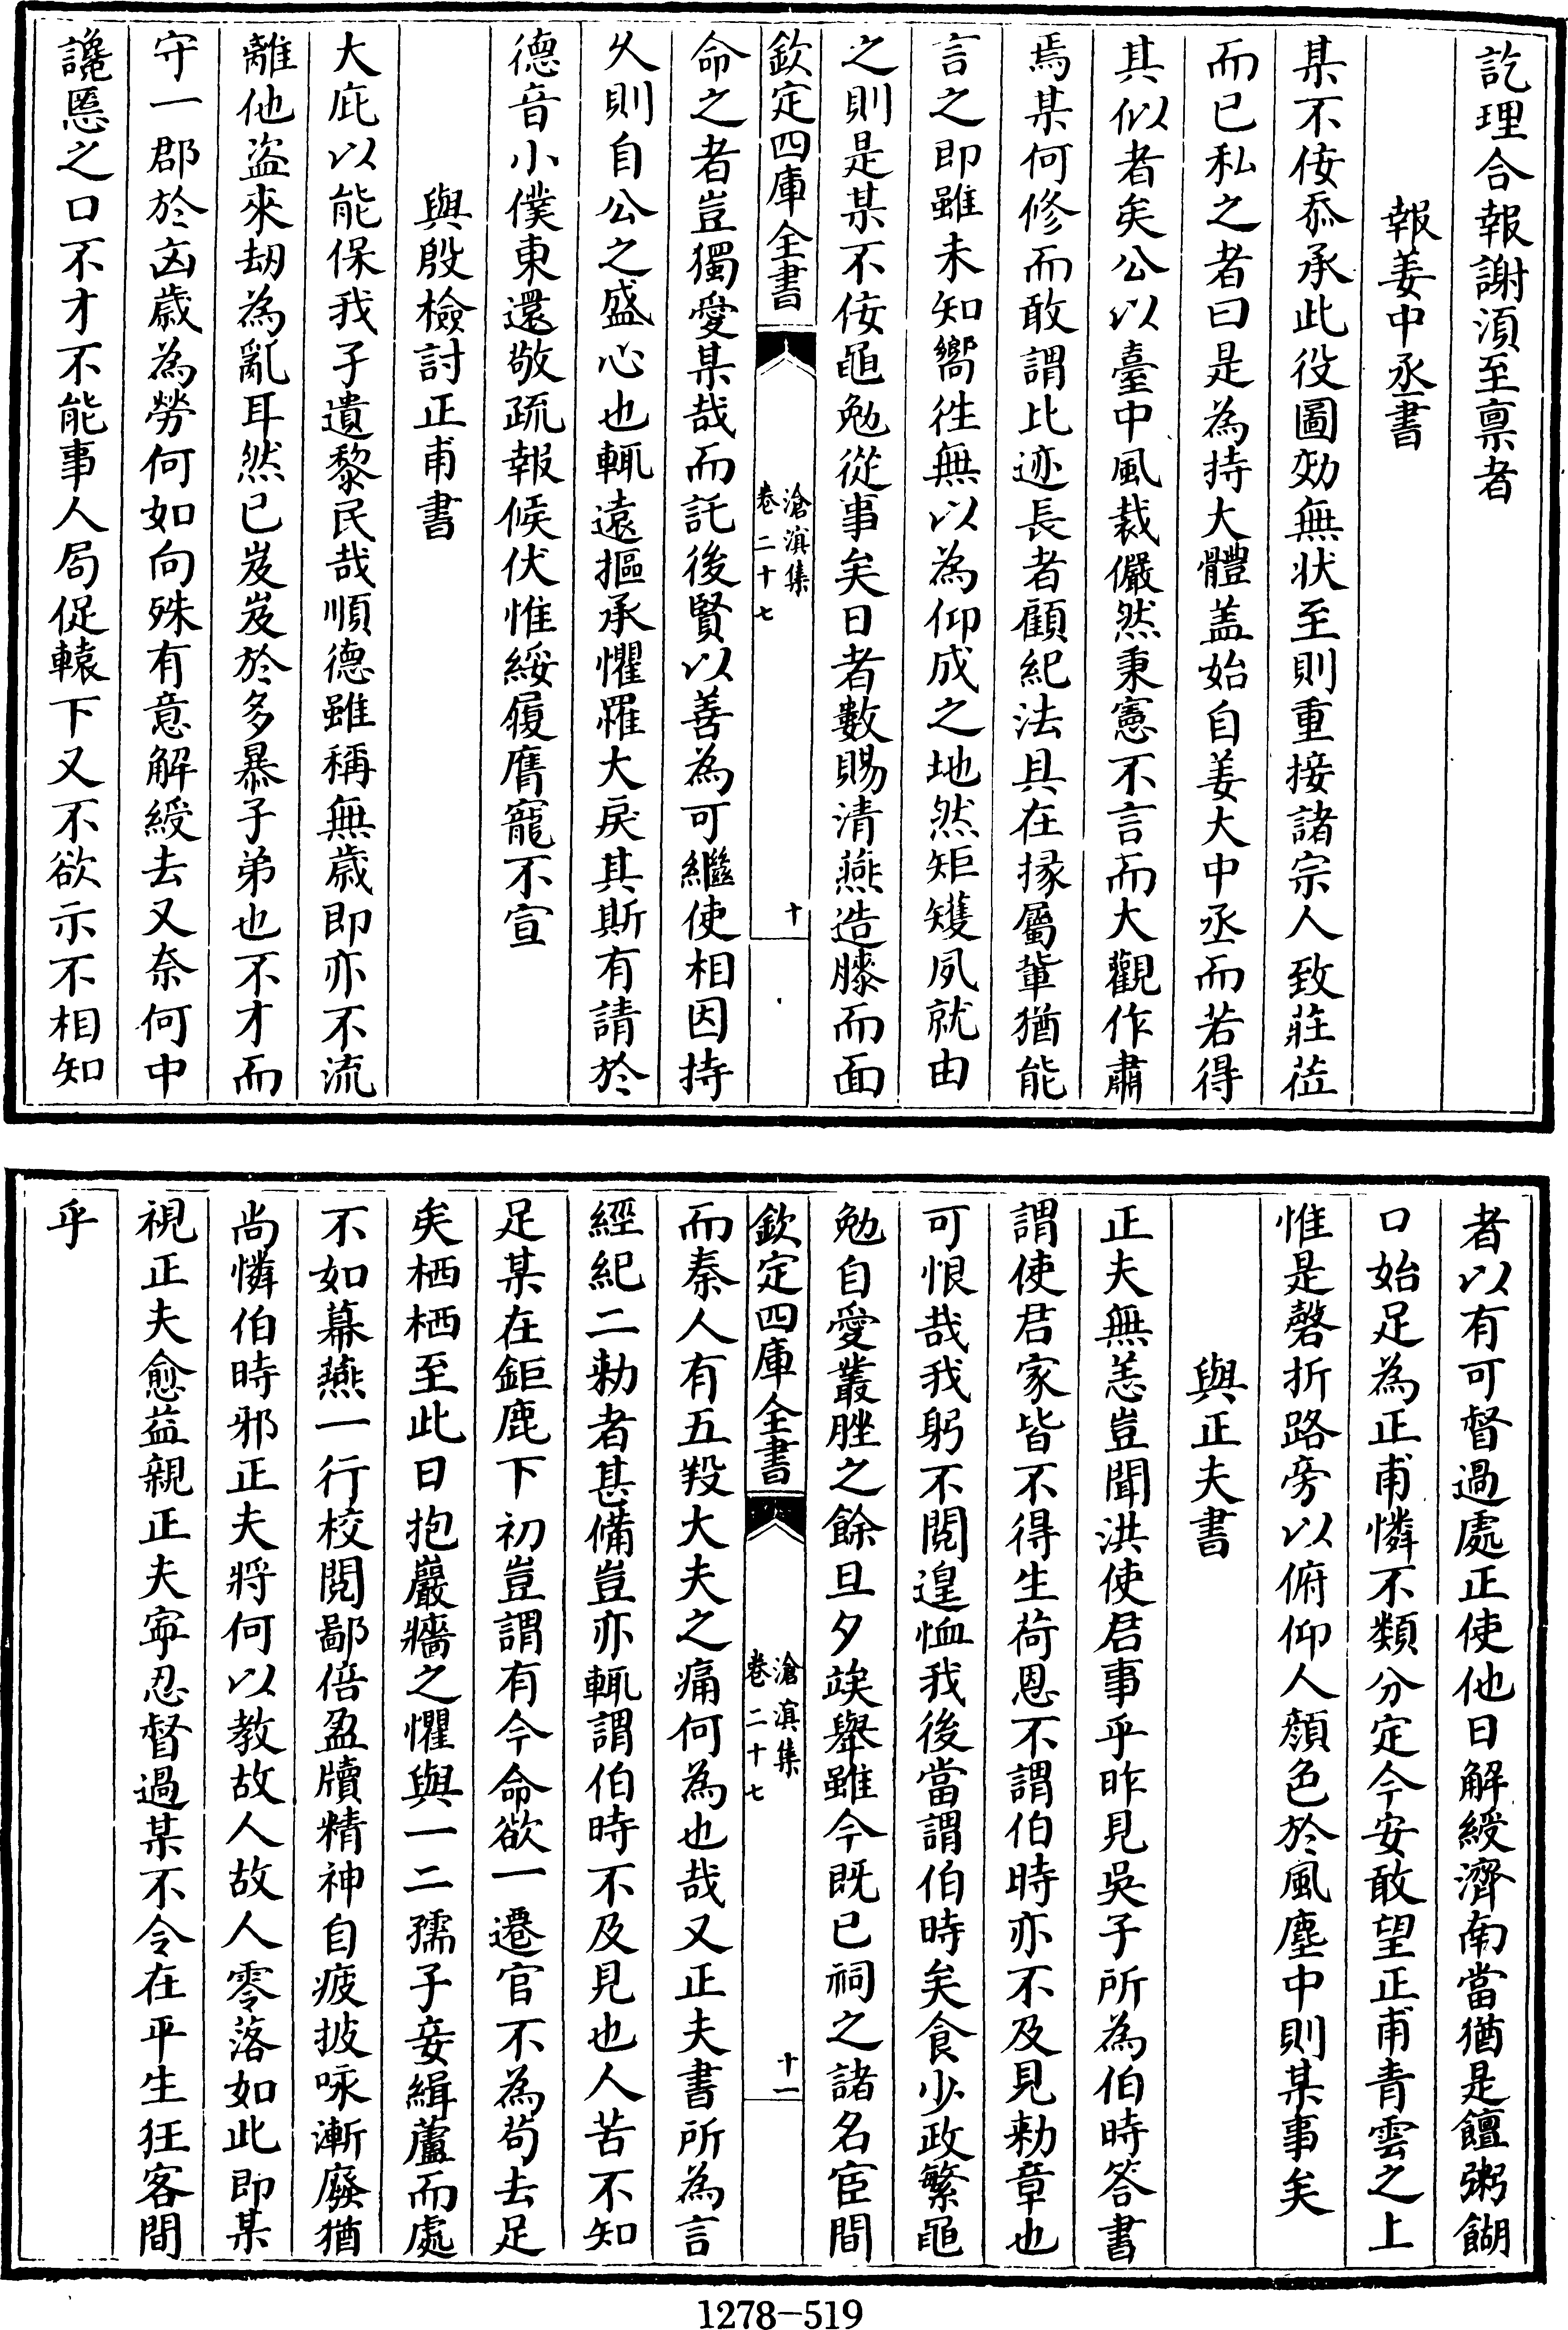 訖理合報謝湏至禀者
報姜中丞書
某不佞忝承此役圖効無狀至則重接諸宗人致莊莅
而已私之者曰是為持大體盖始自姜大中丞而若得
其似者矣公以臺中風裁儼然秉憲不言而大觀作肅
焉某何修而敢謂比迹長者顧紀法具在掾屬軰猶能
言之即雖未知嚮徃無以為仰成之地然矩矱夙就由
之則是某不佞黽勉從事矣日者數賜清燕造膝而面
欽定四庫全書
滄溟集
卷二十七
十
命之者豈獨愛某哉而託後賢以善為可繼使相因持
久則自公之盛心也輒遠摳承懼罹大戾其斯有請於
德音小僕東還敬疏報候伏惟綏履膺寵不宣
與殷檢討正甫書
大庇以能保我孑遺黎民哉順德雖稱無歳即亦不流
離他盜來刼為亂耳然已岌岌於多暴子弟也不才而
守一郡於凶歳為勞何如向殊有意解綬去又奈何中
讒慝之口不才不能事人局促轅下又不欲示不相知
者以有可督過處正使他日解綬濟南當猶是饘粥餬
口始足為正甫憐不類分定今安敢望正甫青雲之上
惟是磬折路旁以俯仰人顔色於風塵中則某事矣
與正夫書
正夫無恙豈聞洪使君事乎昨見吳子所為伯時答書
謂使君家皆不得生荷恩不謂伯時亦不及見勅章也
可恨哉我躬不閱遑恤我後當謂伯時矣食少政繁黽
勉自愛叢脞之餘旦夕竢舉雖今既已祠之諸名宦間
欽定四庫全書
滄溟集
卷二十七
十一
而秦人有五羖大夫之痛何為也哉又正夫書所為言
經紀二勅者甚備豈亦輒謂伯時不及見也人苦不知
足某在鉅鹿下初豈謂有今命欲一遷官不為苟去足
矣栖栖至此日抱巖牆之懼與一二孺子妾緝蘆而處
不如幕燕一行校閱鄙倍盈牘精神自疲披咏漸廢猶
尚憐伯時邪正夫將何以教故人故人零落如此即某
視正夫愈益親正夫寜忍督過某不令在平生狂客間
乎
1278-519